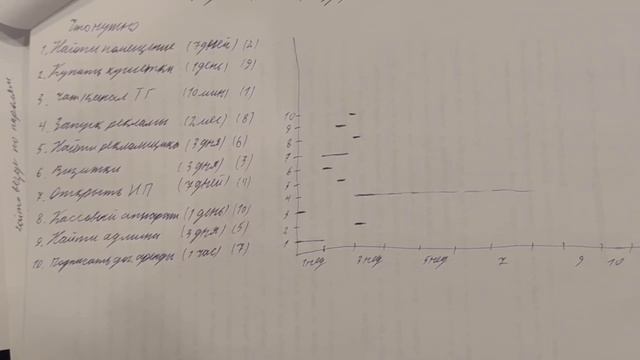 Что нужно
1. Найти помещение (7 дней) (2)
2. Купить кушетки (1 день) (9)
3. Чат/канал ТГ (10 мин) (1)
4. Запуск рекламы (2 мес) (8)
5. Найти рекламщика (3 дня) (6)
6. Визитки (3 дня) (3)
7. Открыть ИП (7 дней) (4)
8. Кассовый аппарат (1 день) (10)
9. Найти админа (3 дня) (5)
10. Подписать дог аренды (1 час) (7)
10
9
8
7
6
5
4
3
2
1
1 нед 3 нед 5 нед 7 9 10